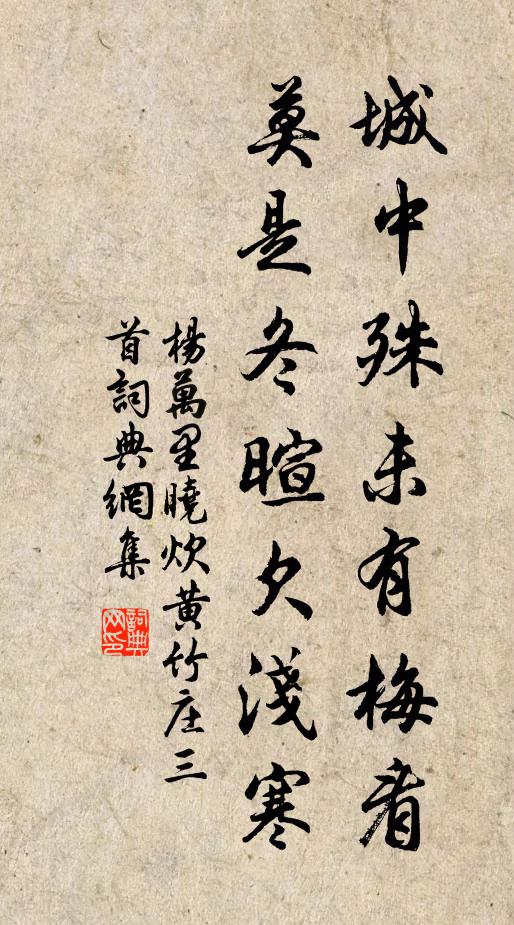 城中殊未有梅看
莫是冬暄欠淺寒
楊萬里曉炊黄竹庄三
首詞典網集
詞典
网印